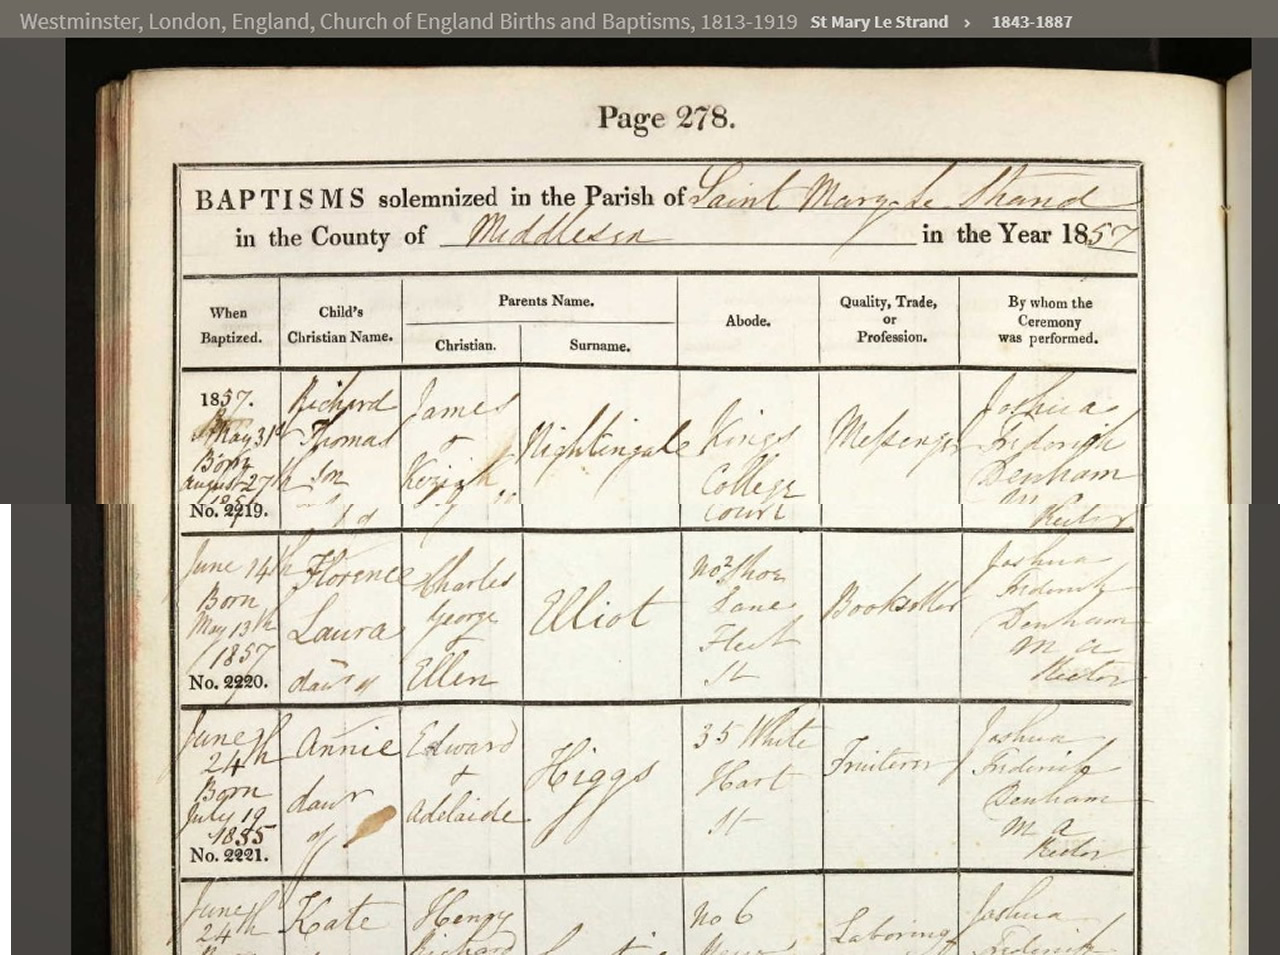 Westminster, London, England, Church of England Births and Baptisms, 1813-1919 St Mary Le Strand › 1843-1887
Page 278.
BAPTISMS solemnized in the Parish of Saint Mary le Strand
in the County of Middlesex in the Year 1857
When Baptized.
Child's Christian Name.
Parents Name.
Christian.
Surname.
Abode.
Quality, Trade, or Profession.
By whom the Ceremony was performed.
1857.
May 31st
Born
August 27th
No. 2219.
Richard
Thomas
Son
of
James
&
Keziah
Nightingale
Kings
College
Court
Messenger
Joshua
Frederick
Denham
M
Rector
June 14th
Born
May 13th
1857
No. 2220.
Florence
Laura
daur of
Charles
George
&
Ellen
Elliot
No 2 Shoe
Lane
Fleet
St
Bookseller
Joshua
Frederick
Denham
M A
Rector
June
24th
Born
July 19
1855
No. 2221.
Annie
daur
of
Edward
&
Adelaide
Higgs
35 White
Hart
St
Fruiterer
Joshua
Frederick
Denham
M A
Rector
June
24th
Kate
Henry
Richard
No 6
Laboring
Joshua
Frederick